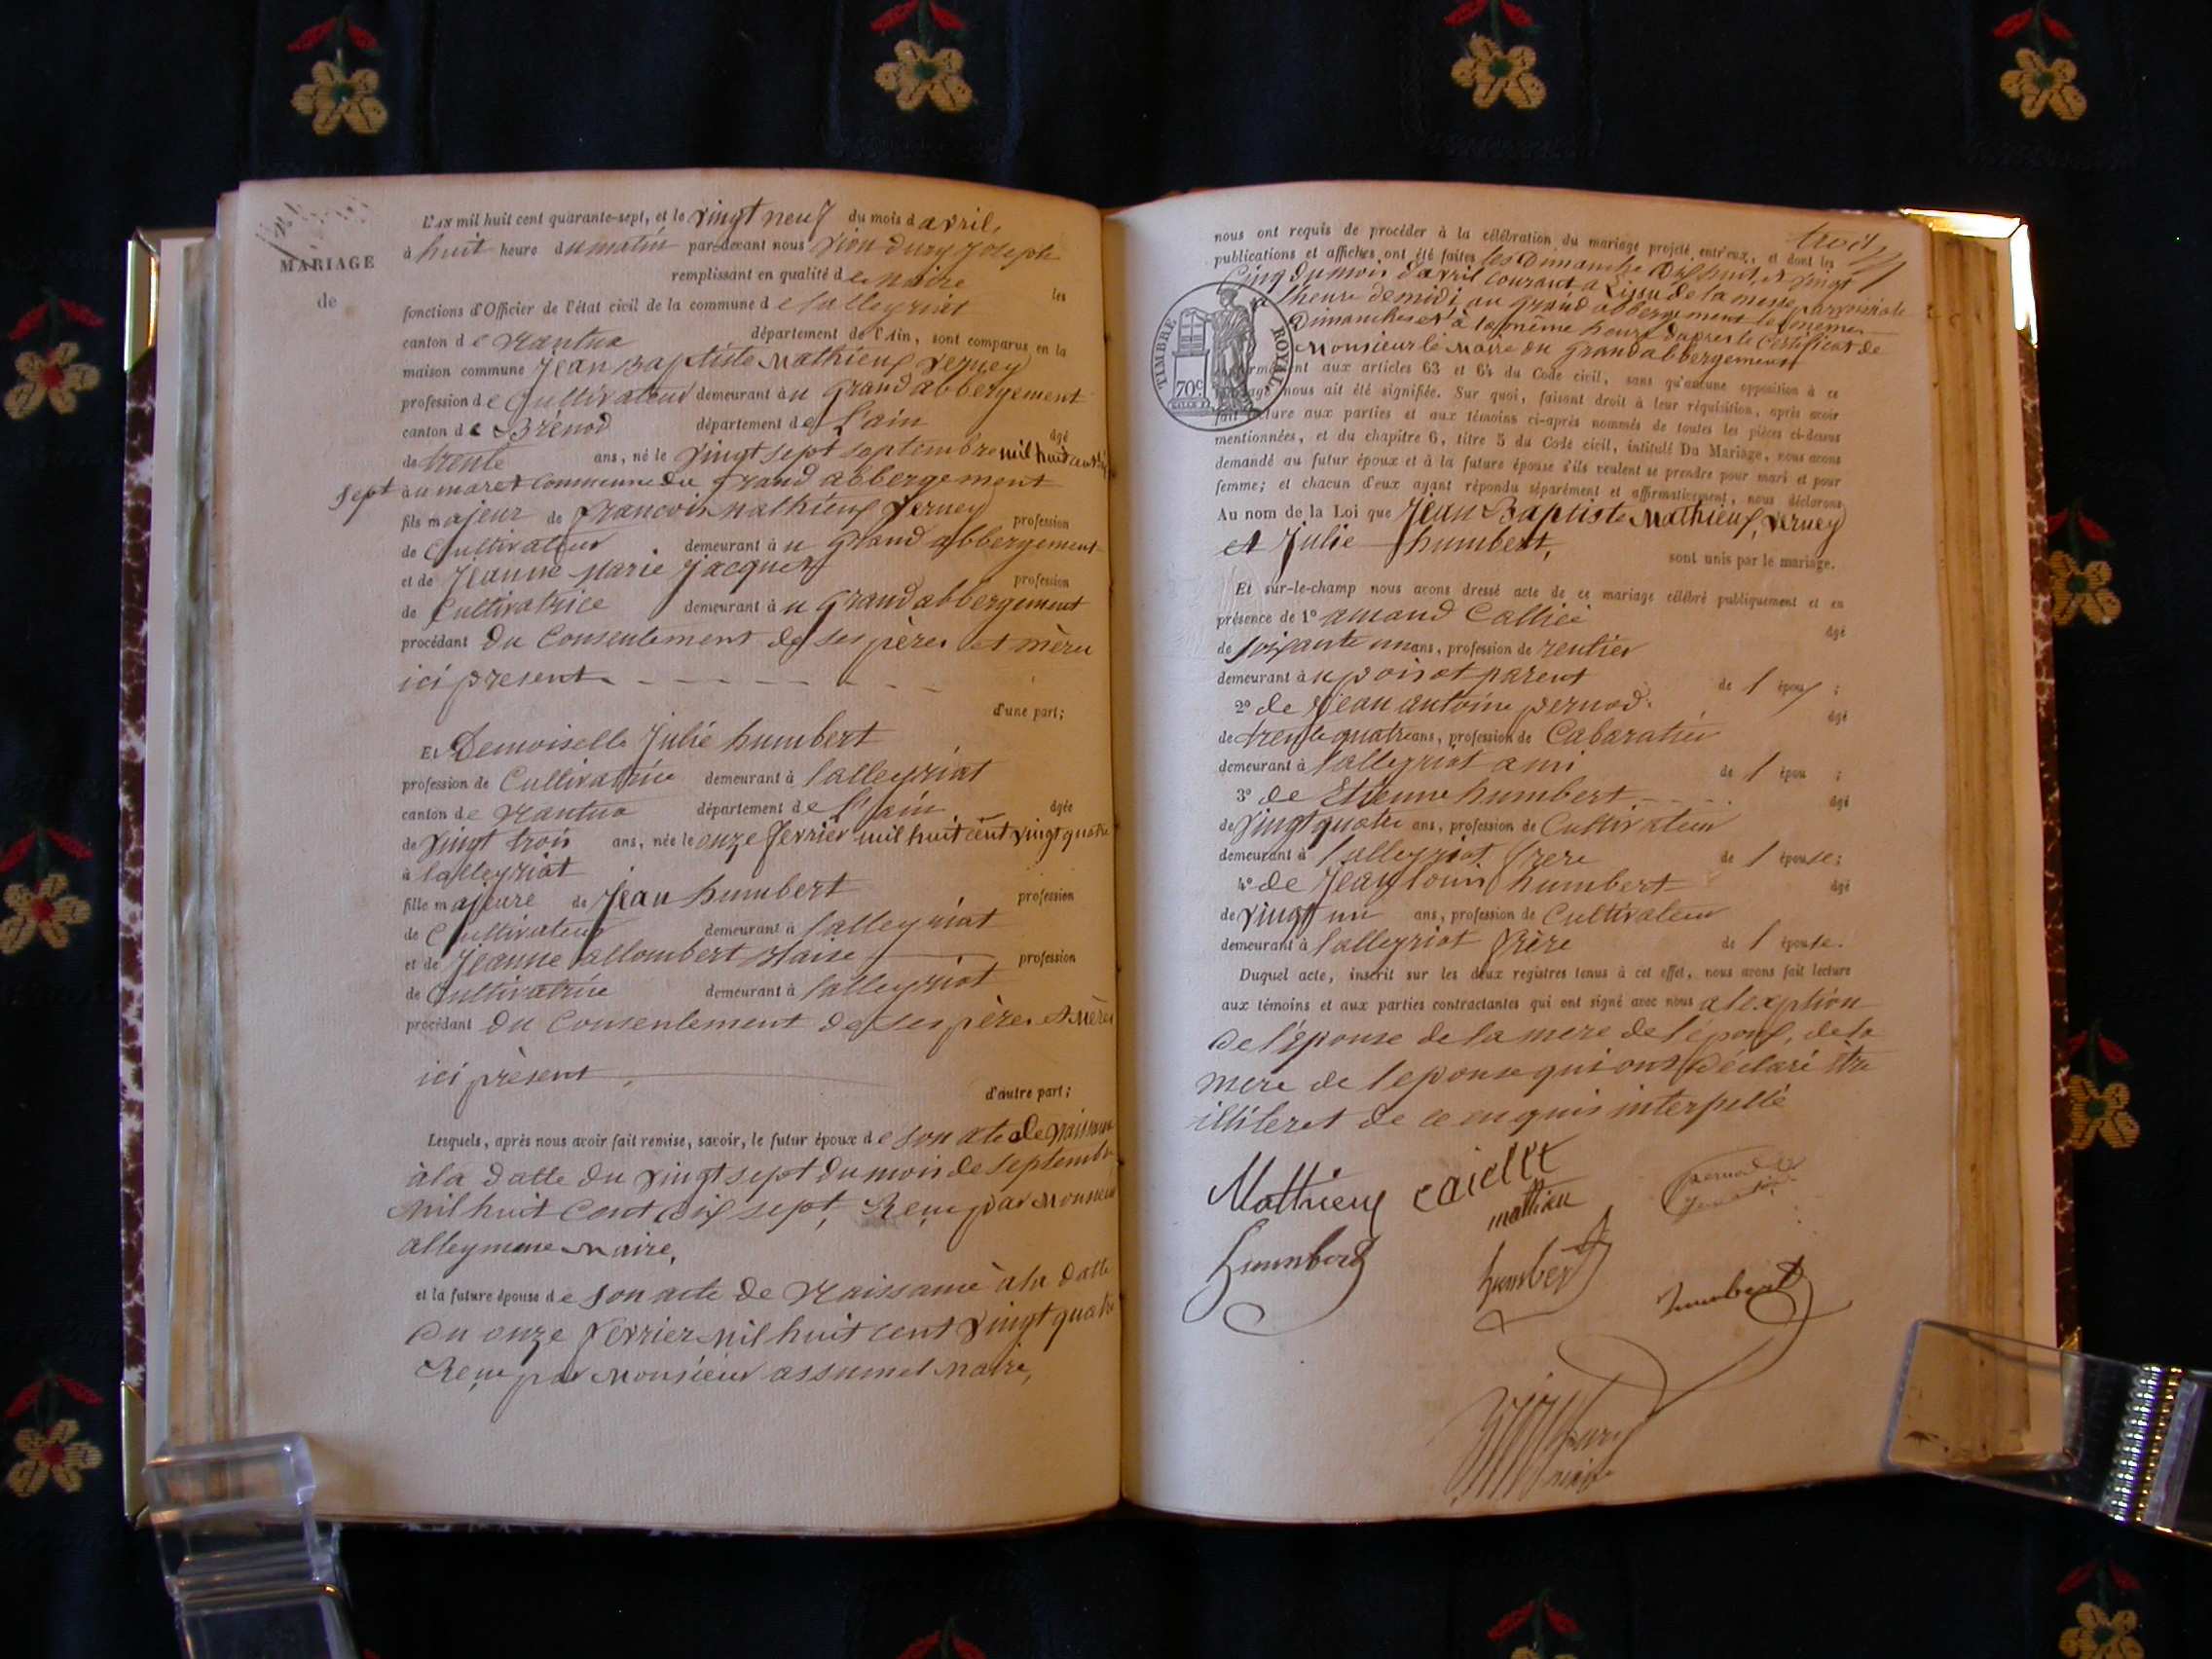 MARIAGE
de
L'AN mil huit cent quarante-sept, et le vingt neuf du mois d avril,
à huit heure du matin par-devant nous Joseph
remplissant en qualité de maire les
fonctions d'Officier de l'état civil de la commune de lalleyriat
canton de Nantua département de l'Ain, sont comparus en la
maison commune Jean Baptiste Mathieux Verney
profession de Cultivateur demeurant au Grand abbergement
canton de Brénod département de l'ain âgé
de trente ans, né le vingt sept septembre mil huit cent dix
sept au maret commune du Grand abbergement
fils majeur de françois Mathieux Verney profession
de Cultivateur demeurant au Grand abbergement
et de Jeanne Marie Jacquet profession
de Cultivatrice demeurant au Grand abbergement
procédant du Consentement de ses pères et mère
ici présent
d'une part;
Et Demoiselle Julie humbert
profession de Cultivatrice demeurant à lalleyriat
canton de Nantua département de l'ain âgée
de vingt trois ans, née le onze fevrier mil huit cent vingt quatre
à lalleyriat
fille majeure de Jean humbert profession
de Cultivateur demeurant à lalleyriat
et de Jeanne allombert Maise profession
de Cultivatrice demeurant à lalleyriat
procédant du Consentement de ses pères et Mère
ici présent,
d'autre part;
Lesquels, après nous avoir fait remise, savoir, le futur époux de son ate de Naissance
à la datte du vingt sept du mois de septembre
Mil huit Cent dix sept, Reçu par Monsieur
alleymene Maire,
et la future épouse de son acte de Naissance à la datte
du onze fevrier Mil huit cent vingt quatre
Reçu par Monsieur assumel Maire,
nous ont requis de procéder à la célébration du mariage projeté entr'eux, et dont les
publications et affiches ont été faites les Dimanche Dix huit, et vingt
Cinq du mois d'avril Courant a l'issu de la messe paroissiale
a l'heure de midi, au Grand abbergement les mêmes
Dimanches et à la même heure d'après le Certificat de
Monsieur le Maire du Grand abbergement
TIMBRE ROYAL
70c
aux articles 63 et 64 du Code civil, sans qu'aucune opposition à ce
nous ait été signifiée. Sur quoi, faisant droit à leur réquisition, après avoir
fait lecture aux parties et aux témoins ci-après nommés de toutes les pièces ci-dessus
mentionnées, et du chapitre 6, titre 5 du Code civil, intitulé Du Mariage, nous avons
demandé au futur époux et à la future épouse s'ils veulent se prendre pour mari et pour
femme; et chacun d'eux ayant répondu séparément et affirmativement, nous déclarons
Au nom de la Loi que Jean Baptiste Mathieux, Verney
et Julie humbert, sont unis par le mariage.
Et sur-le-champ nous avons dressé acte de ce mariage célébré publiquement et en
présence de 1° amand Calliée âgé
de soixante un ans, profession de rentier
demeurant à u poisat parent de l époux ;
2° de Jean antoine pernod. âgé
de trente quatre ans, profession de Cabaratier
demeurant à lalleyriat ami de l épou ;
3° de Etienne humbert âgé
de vingt quatre ans, profession de Cultivateur
demeurant à lalleyriat frere de l épouse;
4° de Jean louis humbert âgé
de vingt un ans, profession de Cultivateur
demeurant à lalleyriat frère de l épouse.
Duquel acte, inscrit sur les deux registres tenus à cet effet, nous avons fait lecture
aux témoins et aux parties contractantes qui ont signé avec nous a lexption
de l'épouse de la mere de l'époux, de la
mere de lepouse qui ont déclaré être
illiteret de ce enquis interpellé
Mathieux caielle
mathieu pernod
humbert humbert humbert
maire